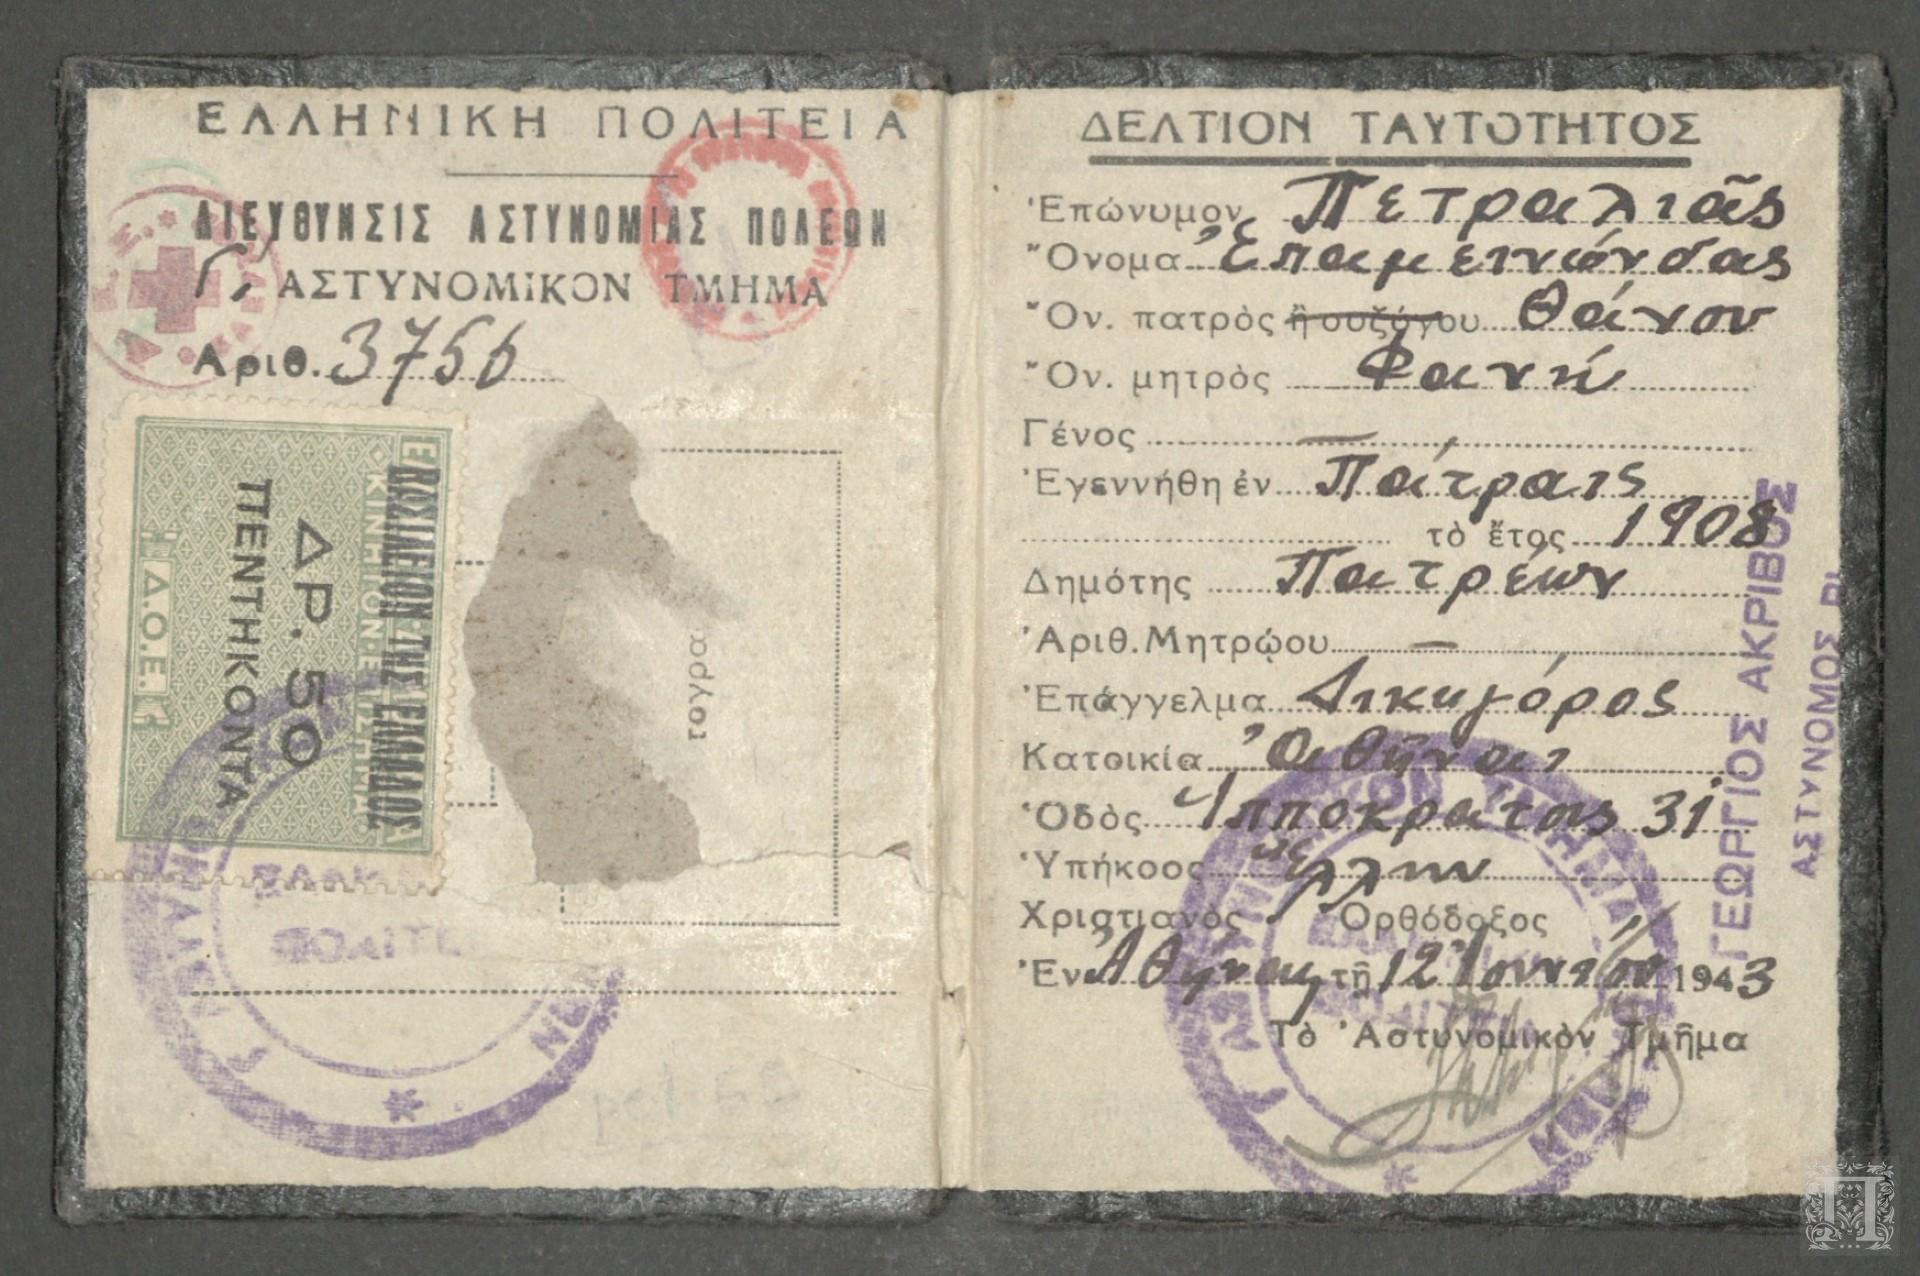 ΕΛΛΗΝΙΚΗ ΠΟΛΙΤΕΙΑ
ΔΙΕΥΘΥΝΣΙΣ ΑΣΤΥΝΟΜΙΑΣ ΠΟΛΕΩΝ
Γ' ΑΣΤΥΝΟΜΙΚΟΝ ΤΜΗΜΑ
Αριθ. 3756
ΒΑΣΙΛΕΙΟΝ ΤΗΣ ΕΛΛΑΔΟΣ
ΔΡ. 50
ΠΕΝΤΗΚΟΝΤΑ
Δ.Ο.Ε.
ΔΕΛΤΙΟΝ ΤΑΥΤΟΤΗΤΟΣ
Ἐπώνυμον Πετραλιᾶς
Ὄνομα Ἐπαμεινώνδας
Ὄν. πατρὸς ἢ συζύγου Θάνου
Ὄν. μητρὸς Φανή
Γένος —
Ἐγεννήθη ἐν Πάτραις
τὸ ἔτος 1908
Δημότης Πατρέων
Ἀριθ. Μητρῴου —
Ἐπάγγελμα Δικηγόρος
Κατοικία Ἀθῆναι
Ὁδὸς Ἱπποκράτους 31
Ὑπήκοος Ἕλλην
Χριστιανὸς Ὀρθόδοξος
Ἐν Ἀθήναις τῇ 12 Ἰουνίου 1943
Τὸ Ἀστυνομικὸν Τμῆμα
ΓΕΩΡΓΙΟΣ ΑΚΡΙΒΟΣ
ΑΣΤΥΝΟΜΟΣ Β!